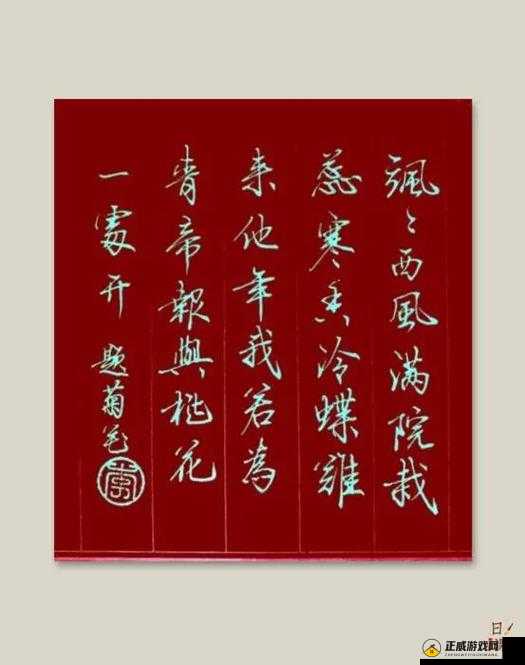 颯〻西風满院栽
蕊寒香冷蝶難
来他年我若為
青帝報與桃花
一處开 題菊花
正威游戏网